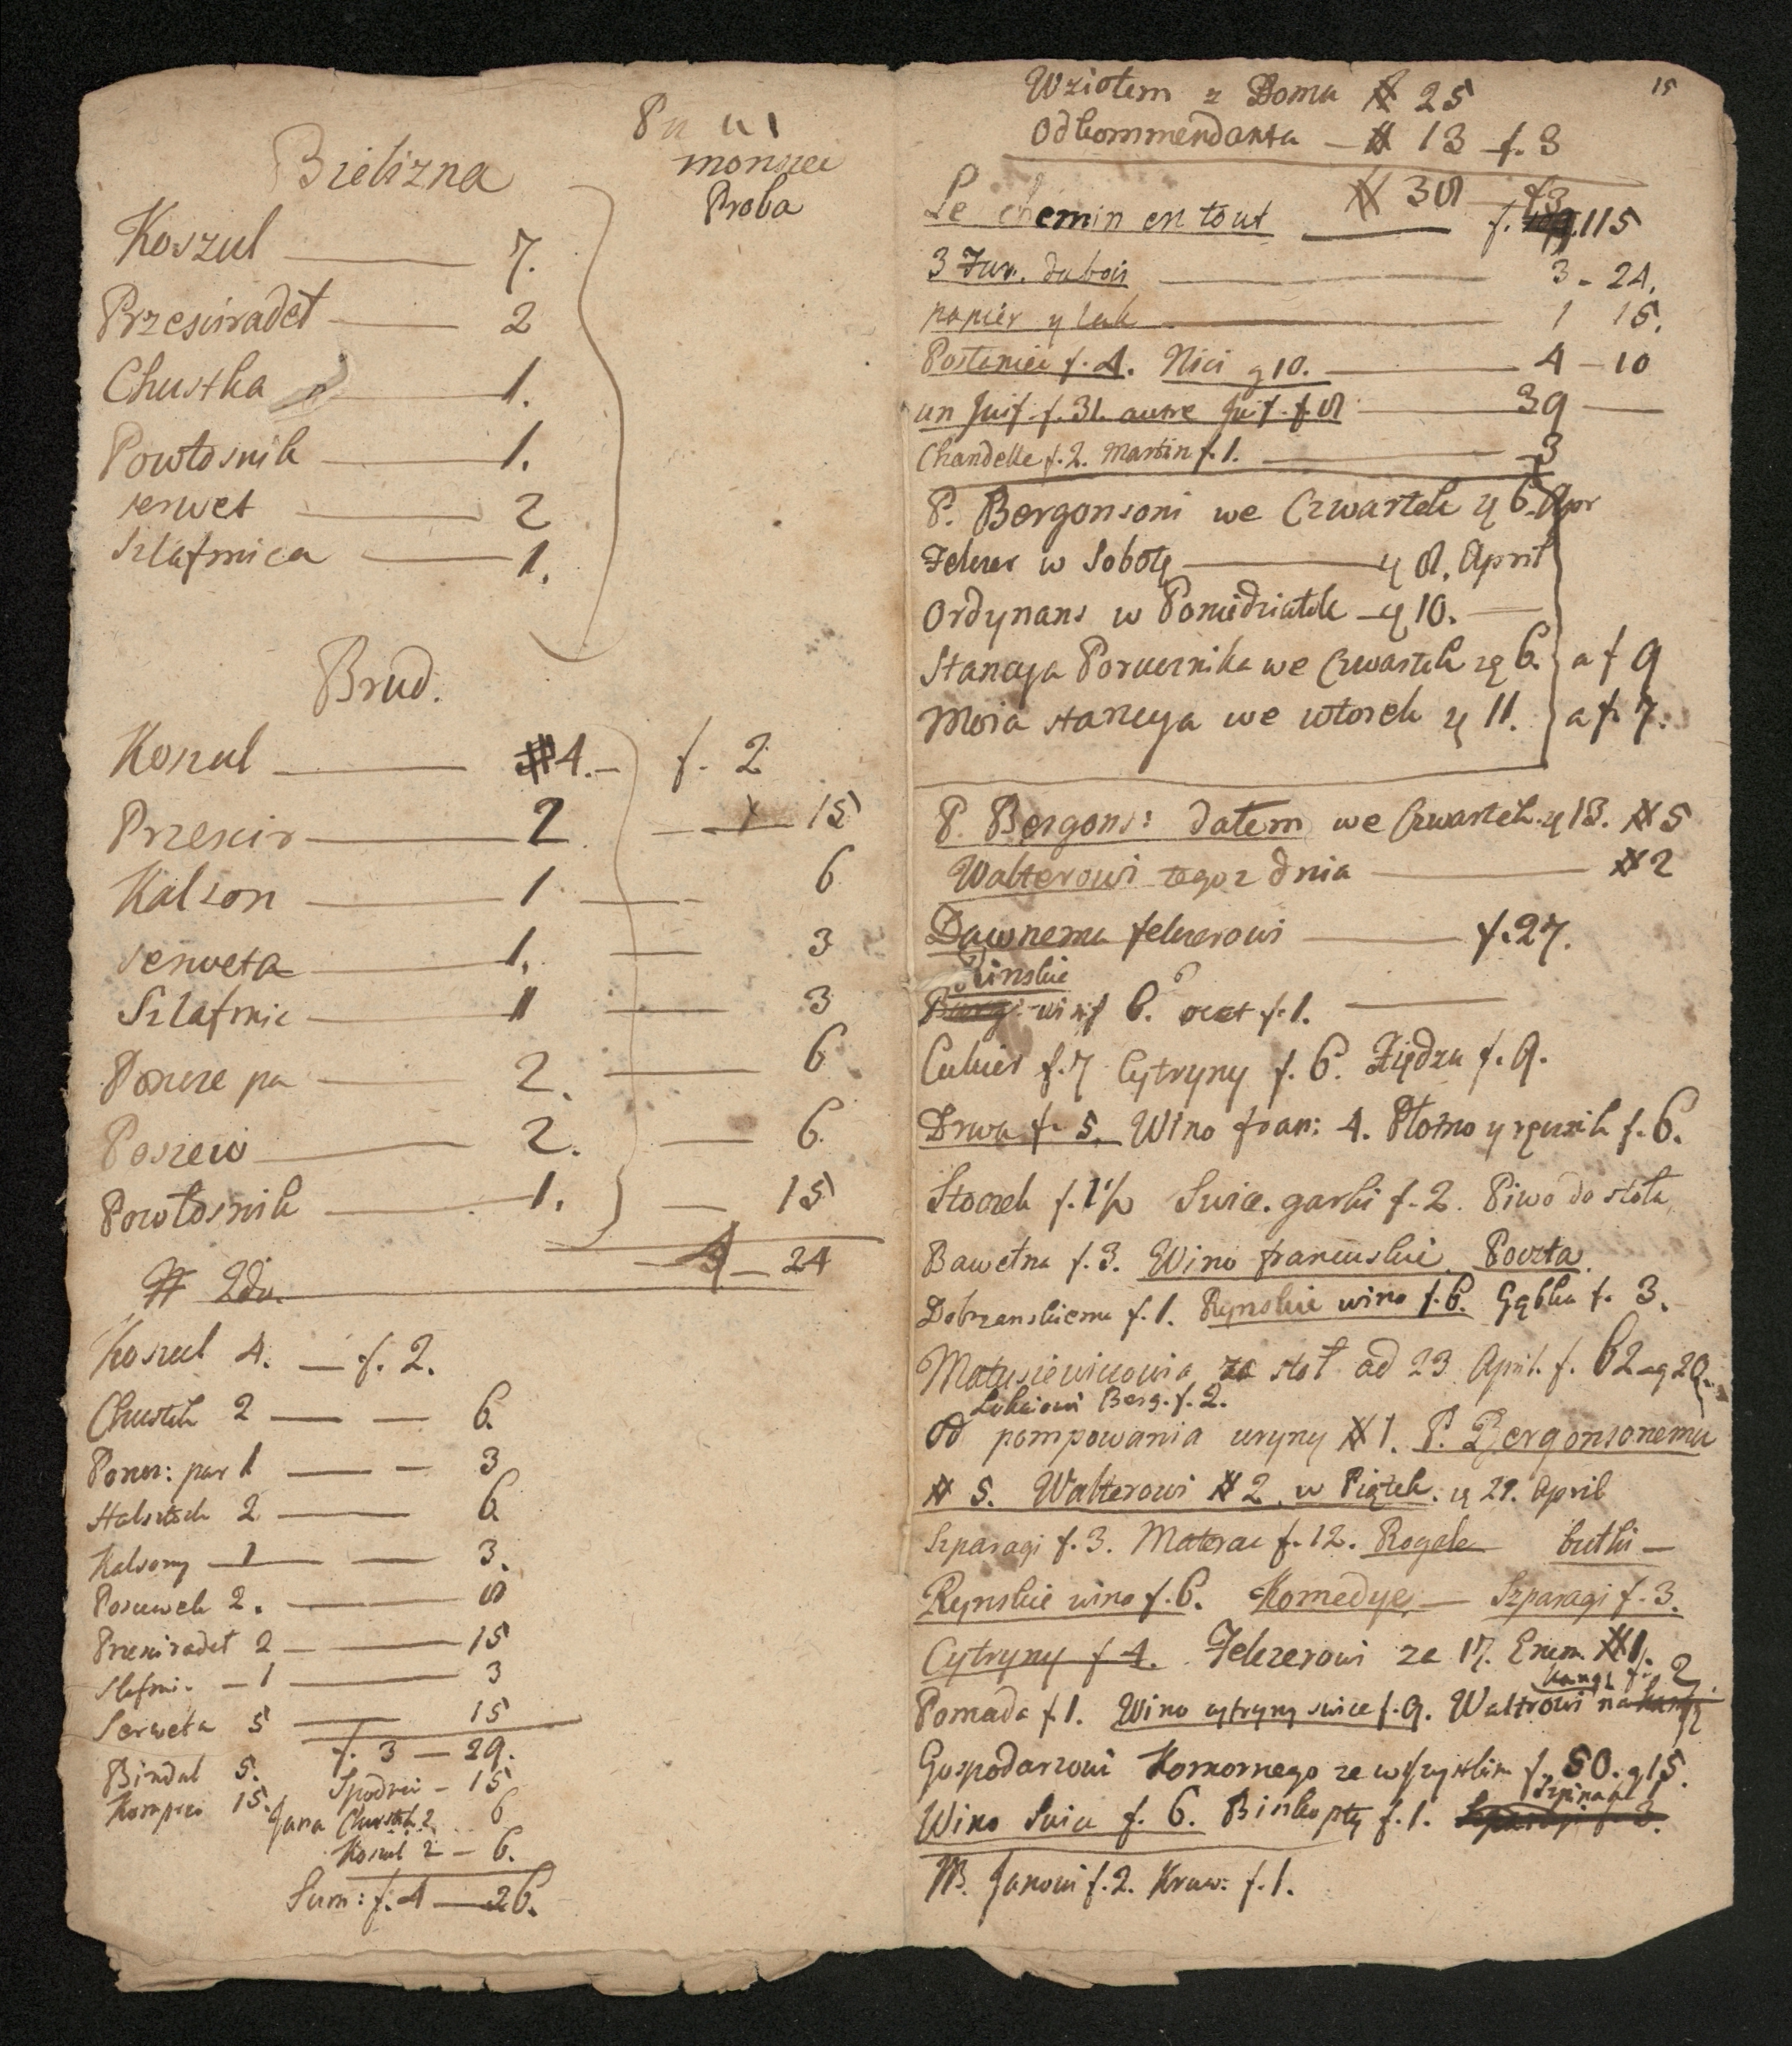 Bielizna
Proba
Koszul 7.
Przescieradeł 2
Chustka 1.
Powłosnik 1.
serwet 2
Szlafmica 1.
Brud.
Koszul #4. f. 2
Przescir 2 15
Kalson 1 6
serweta 1. 3
Szlafmic 1 3
Poncze pa 2. 6
Poszew 2. 6
Powłosnik 1. 15
4 24
Koszul 4. f. 2.
Chustek 2 6
Poncz: par 1 3
Halsztuch 2 6
Kalsony 1 3.
Poszewek 2. 8
Przescieradeł 2 15
Slafmi. 1 3
Serweta 5 15
f. 3 29.
Bindal 5. Spodnie 15
Kompres 15. Jana Chustek 2 6
Koszul 2 6.
Sum: f. 4 26.
15
Wziołem z Domu # 25
Od kommendanta # 13 f. 3
# 38 f3
Le chemin en tout f. 115
3 Fur. du bois 3 - 24.
papier y lak 1 15.
Posłaniec f. 4. Nici g 10. 4 - 10
un Juif f. 31. autre Juif f. 8 39
Chandelle f. 2. Martin f. 1. 3
P. Bergonsoni we Czwartek y 6. Apr
Felczer w Sobotę y 8. April
Ordynans w Poniedziałek y 10.
Stancya Porucznika we Czwartek y 6. a f 9
Moia stancya we wtorek y 11. a f. 7.
P. Bergons: dałem we Czwartek y 13. # 5
Walterowi tegoz dnia # 2
Dawnemu felczerowi f. 27.
Rinskie
wi f 6. ocet f. 1.
Cukier f. 7 Cytryny f. 6. Xiędzu f. 9.
Drwa f. 5. Wino fran: 4. Płotno y ręcznik f. 6.
Stoczek f. 1 1/2 Swie. garki f. 2. Piwo do stołu
Bawełna f. 3. Wino francuskie. Poczta.
Dobrzanskiemu f. 1. Rynskie wino f. 6. Gąbka f. 3.
Matusiewiczowia za stoł ad 23 April. f. 62 g 20.
Berg. f. 2.
Od pompowania uryny # 1. P. Bergonsonemu
# 5. Walterowi # 2. w Piątek. y 21. April
Szparagi f. 3. Materac f. 12. Rogale butki
Rynskie wino f. 6. Komedye, Szparagi f. 3.
Cytryny f 4. Felczerowi za 17. Enem. # 1.
Pomada f 1. Wino cytryny swice f. 9. Waltrowi na 2
Gospodarzowi Komornego ze wszystkim f. 50. g 15.
Szpinak
Wino Swice f. 6. Biszkopty f. 1. Szparagi f. 3.
NB. Janowi f. 2. Kraw: f. 1.